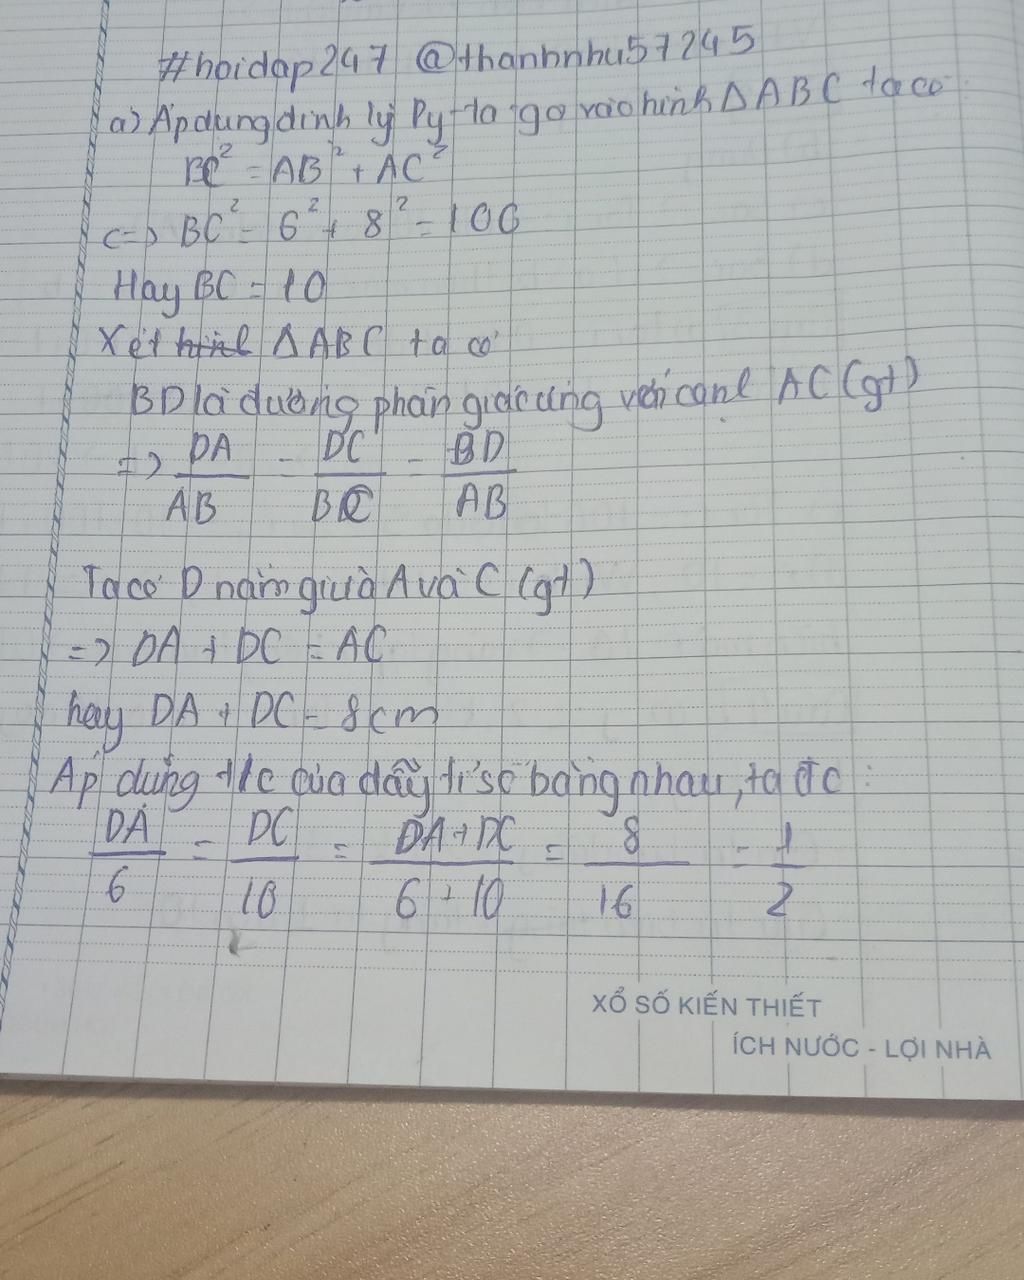 #hoidap247 @thanhnhu57245
a) Áp dụng định lý Py-ta-go vào hình ΔABC ta có
BC² = AB² + AC²
<=> BC² = 6² + 8² = 100
Hay BC = 10
Xét hình ΔABC ta có
BD là đường phân giác ứng với cạnh AC (gt)
=> DA/AB = DC/BC = BD/AB
Ta có D nằm giữa A và C (gt)
=> DA + DC = AC
hay DA + DC = 8cm
Áp dụng t/c của dãy tỉ số bằng nhau, ta đc :
DA/6 = DC/10 = DA+DC/6+10 = 8/16 = 1/2
XỔ SỐ KIẾN THIẾT
ÍCH NƯỚC - LỢI NHÀ